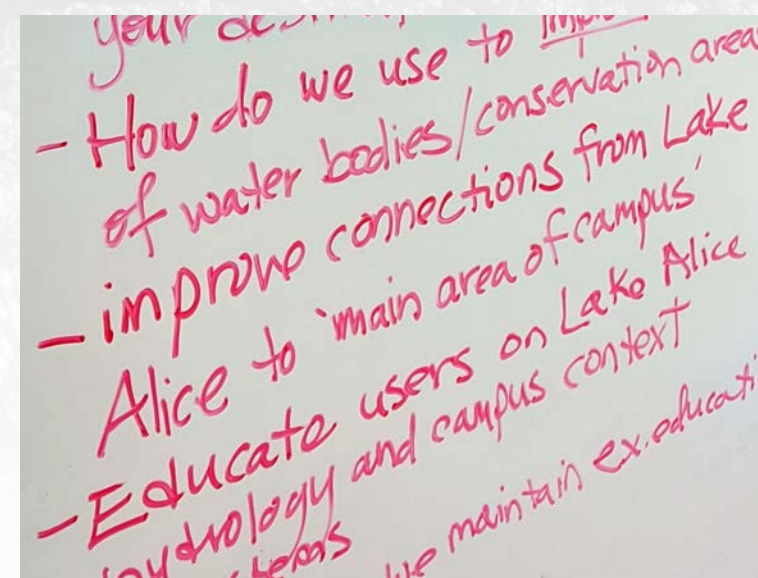 your
- How do we use to
of water bodies/conservation area
- improve connections from Lake
Alice to 'main area of campus'
- Educate users on Lake Alice
hydrology and campus context
maintain ex. educati